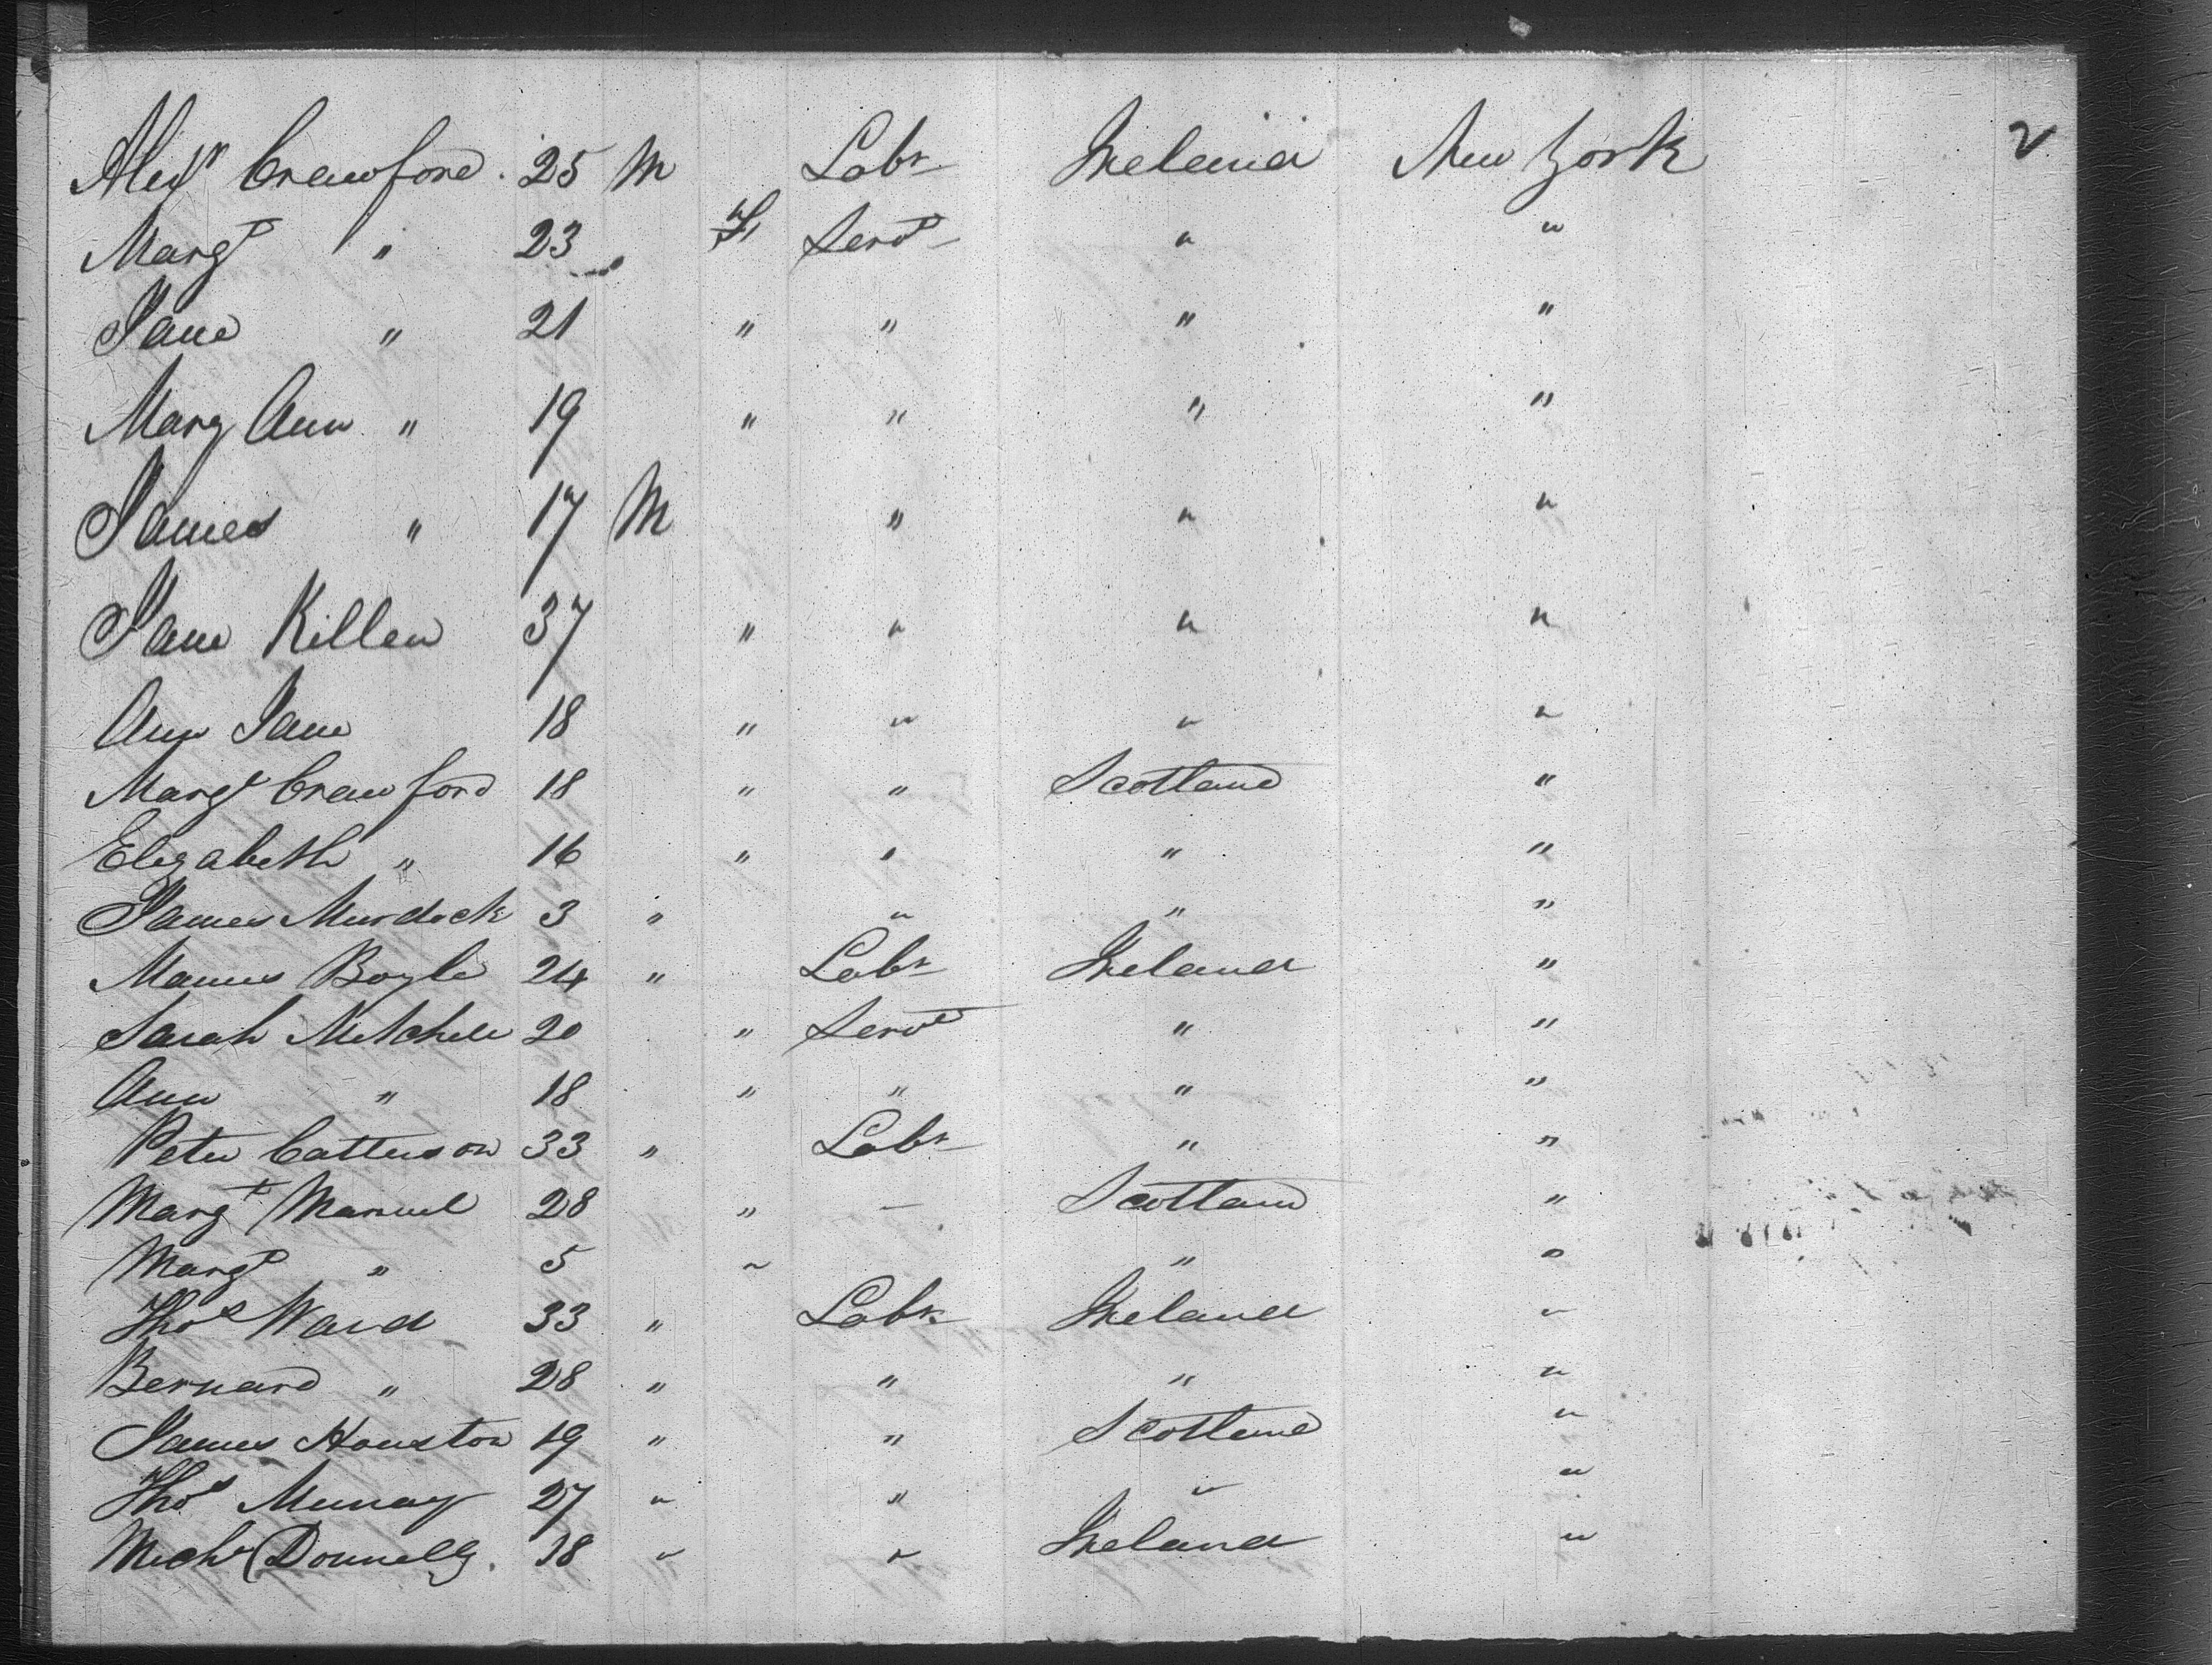 2
Alexr Crawford. 25 M Labr Ireland New York
Margt " 23 F Servt " "
Jane " 21 " " " "
Mary Ann " 19 " " " "
James " 17 M " " "
Jane Killen 37 " " " "
Ann Jane 18 " " " "
Margt Crawford 18 " " Scotland "
Elizabeth " 16 " " " "
James Murdock 3 " " " "
Manus Boyle 24 " Labr Ireland "
Sarah Mitchell 20 " Servt " "
Ann " 18 " " " "
Peter Catterson 33 " Labr " "
Margt Manuel 28 " — Scotland "
Margt " 5 " " "
Thos Ward 33 " Labr Ireland "
Bernard " 28 " " " "
James Houston 19 " " Scotland "
Thos Murray 27 " " " "
Michl Donnelly. 18 " " Ireland "